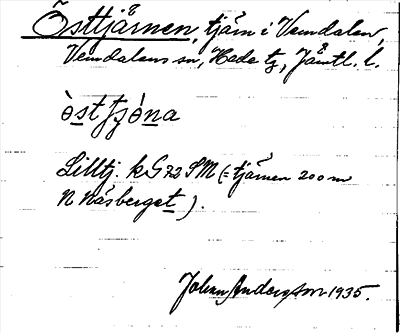 Östtjärnen, tjärn i Vemdalen,
Vemdalens sn, Hede tg, Jämtl. l.
òsttjo̊̀na
Lilltj. k G 72 SM (= tjärnen 200 m
N Näsberget).
Johan Andersson 1935.